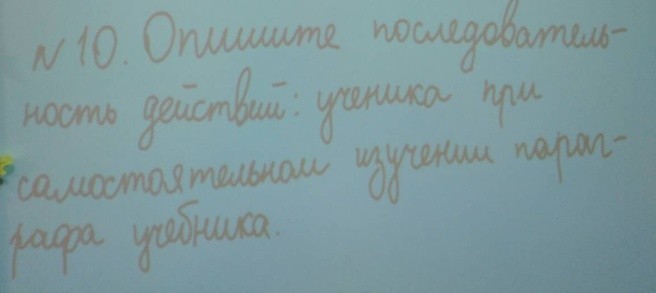 N 10. Опишите последователь-
ность действий: ученика при
самостоятельном изучении параг-
рафа учебника.